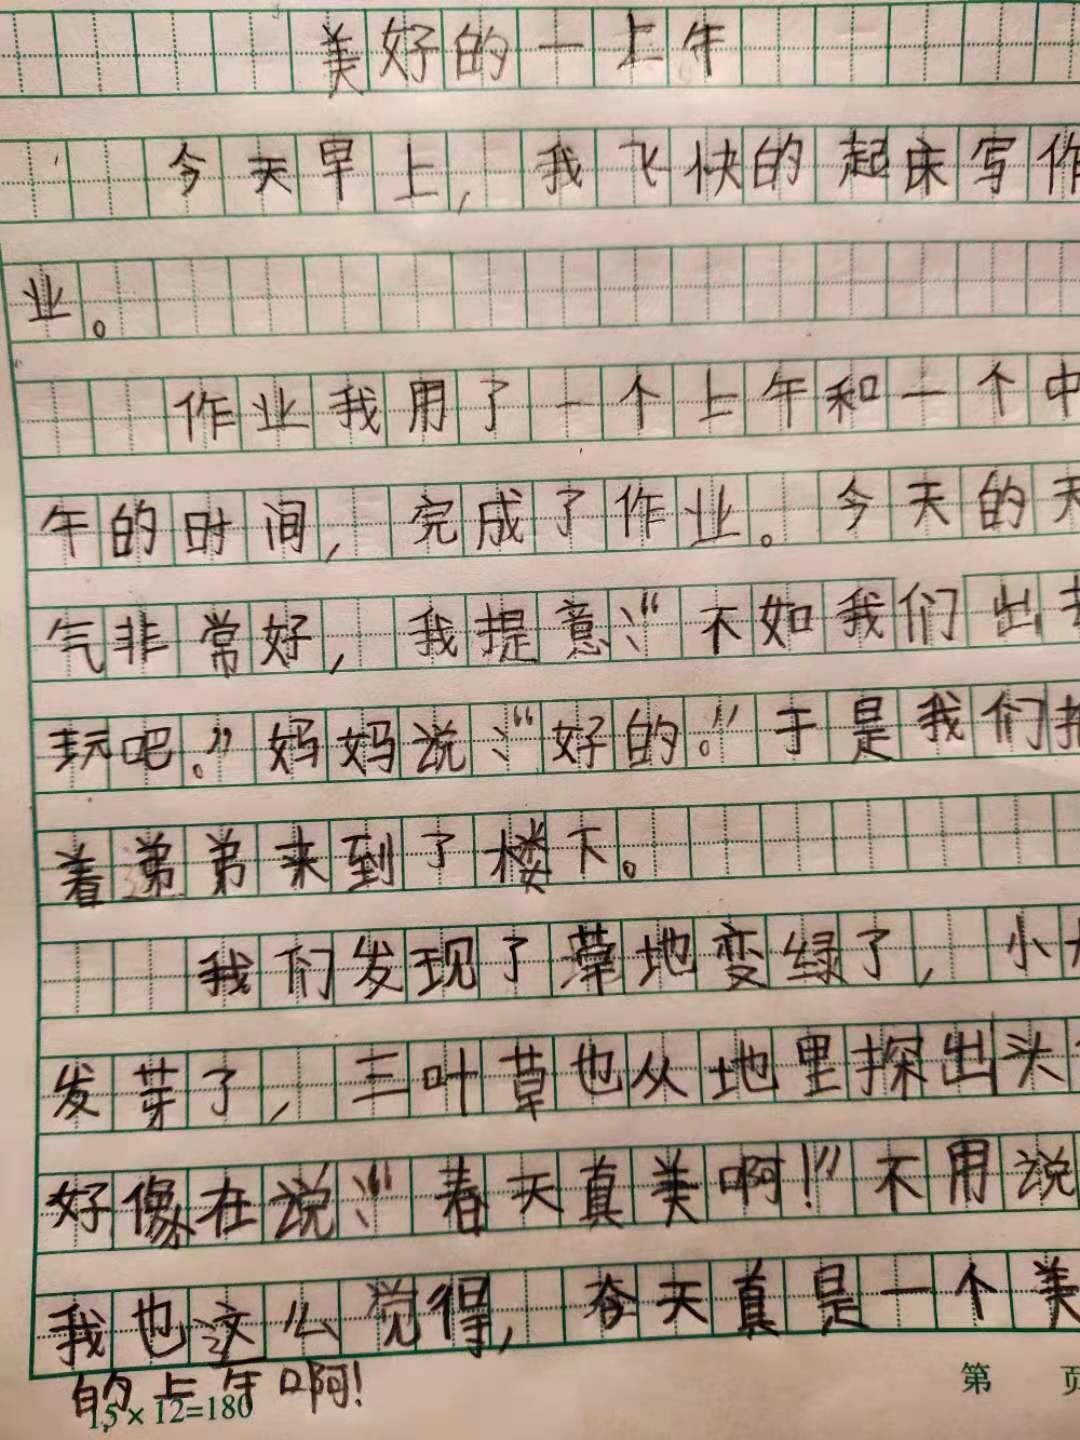 美好的一上午
今天早上，我飞快的起床写作
业。
作业我用了一个上午和一个中
午的时间，完成了作业。今天的天
气非常好，我提意：“不如我们出
玩吧。”妈妈说：“好的。”于是我们
着弟弟来到了楼下。
我们发现了草地变绿了，小
发芽了，三叶草也从地里探出头
好像在说：“春天真美啊！”不用说
我也这么觉得，春天真是一个美
的上午啊！
15×12=180
第 页